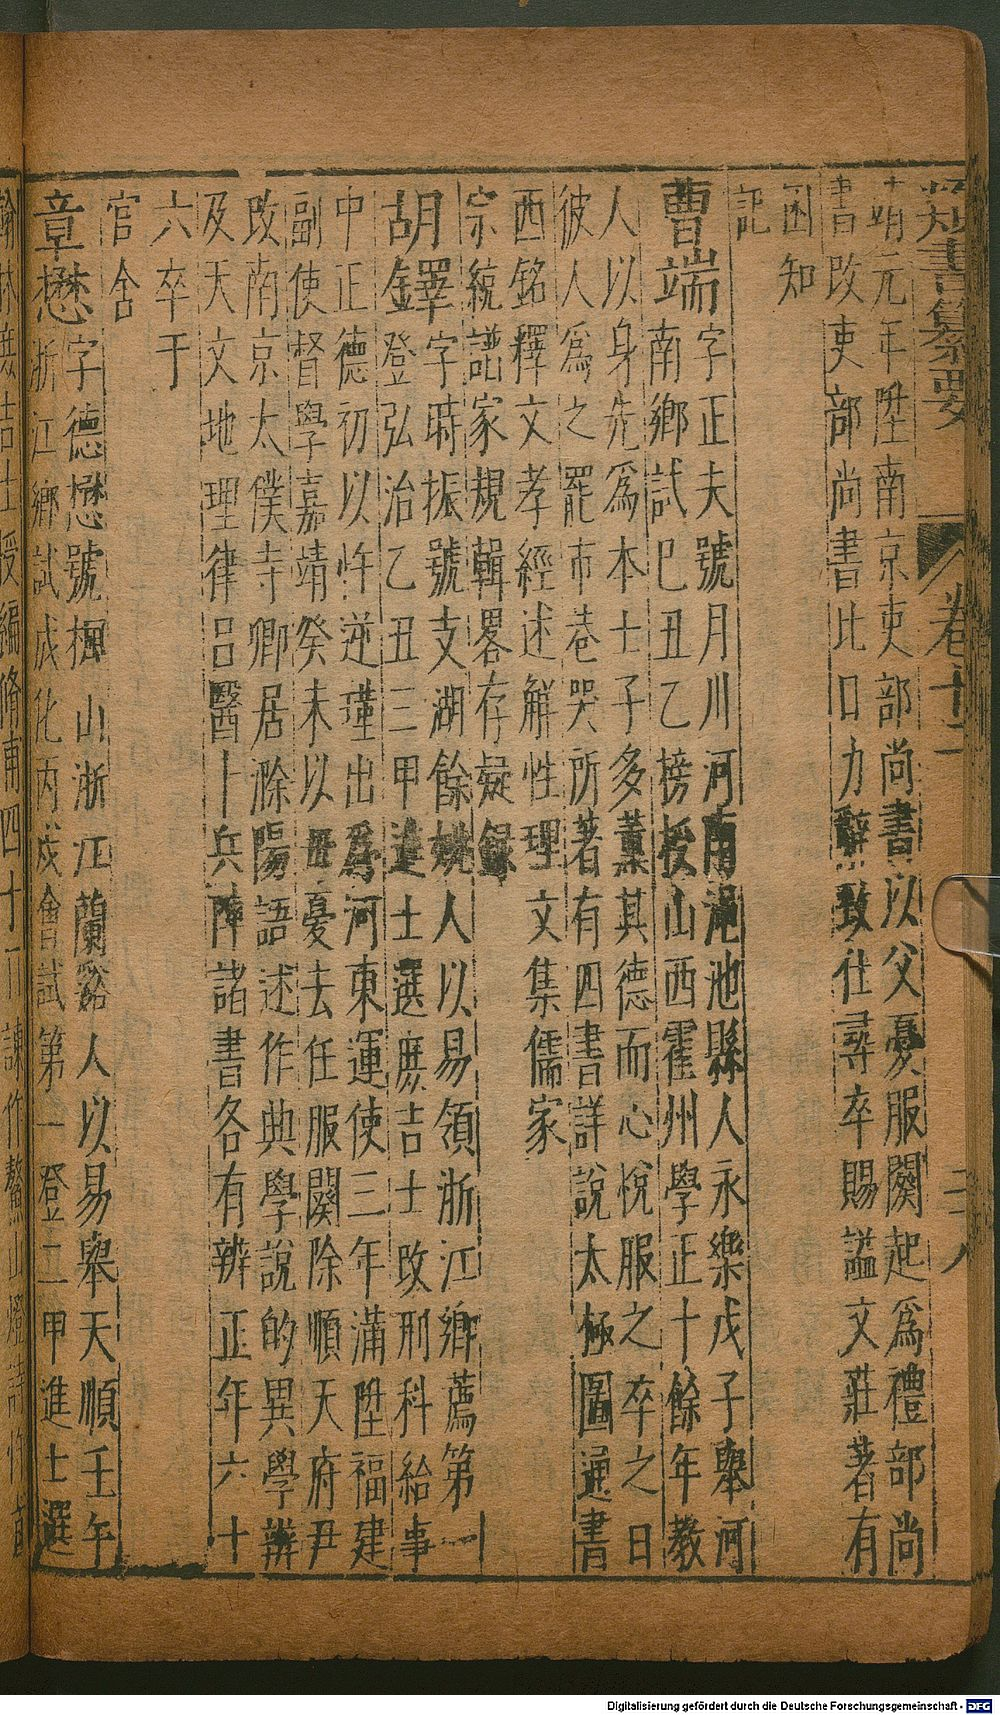 類書纂要 卷十二 三十八
靖元年陞南京吏部尚書以父憂服闋起爲禮部尚
書改吏部尚書比日力辭致仕尋卒賜謚文莊著有
困知
記
曹端字正夫號月川河南澠池縣人永樂戊子舉河
南鄉試巳丑乙榜授山西霍州學正十餘年教
人以身先爲本士子多薰其德而心悅服之卒之日
彼人爲之罷市巷哭所著有四書詳說太極圖通書
西銘釋文孝經述解性理文集儒家
宗統譜家規輯畧存疑錄
胡鐸字時振號支湖餘姚人以易領浙江鄉薦第一
登弘治乙丑三甲進士選庶吉士改刑科給事
中正德初以忤逆瑾出爲河東運使三年滿陞福建
副使督學嘉靖癸未以母憂去任服闋除順天府尹
改南京太僕寺卿居滁陽語述作典學說的異學辨
及天文地理律呂醫卜兵陣諸書各有辨正年六十
六卒于
官舍
章懋字德懋號楓山浙江蘭谿人以易舉天順壬午
浙江鄉試成化丙戌會試第一登二甲進士選
翰林庶吉士授編脩東四十一諫作鰲山燈詩
Digitalisierung gefördert durch die Deutsche Forschungsgemeinschaft - DFG